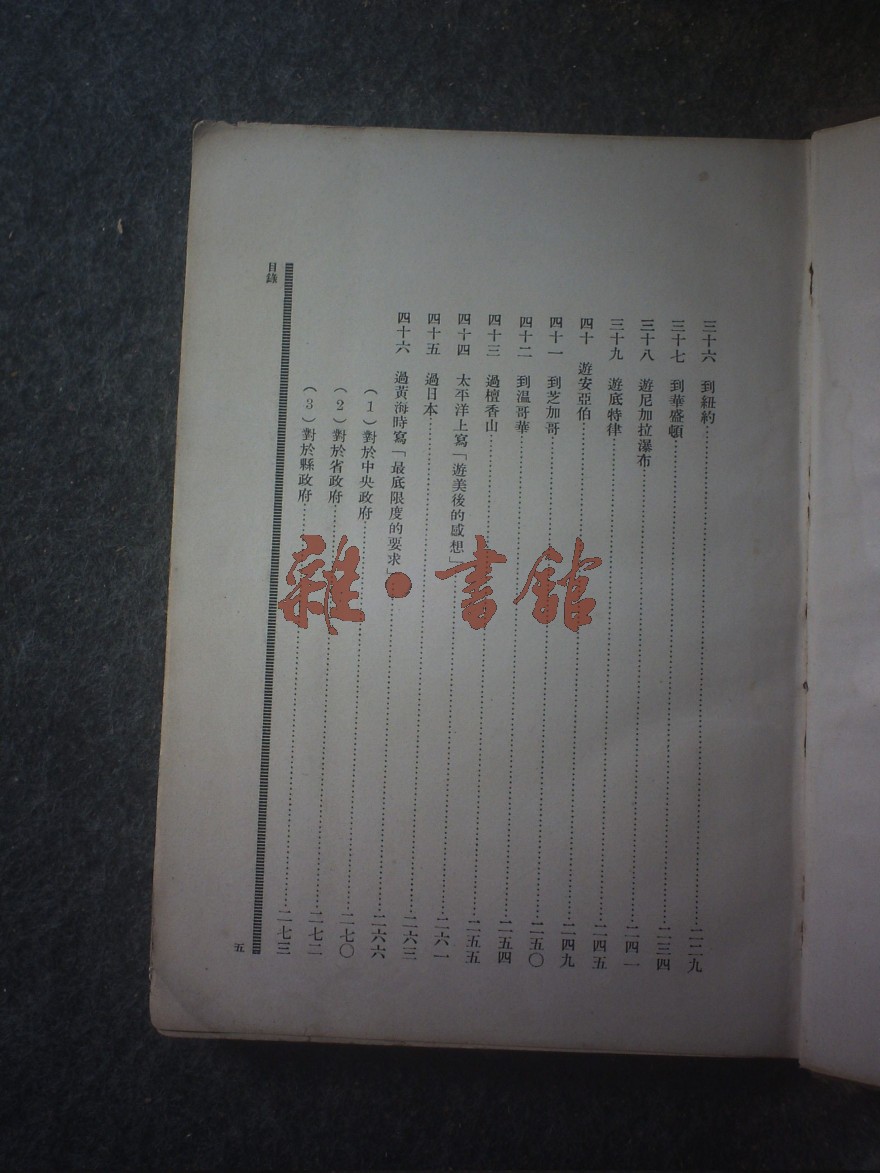 三十六 到紐約⋯⋯二二九
三十七 到華盛頓⋯⋯二三四
三十八 遊尼加拉瀑布⋯⋯二四一
三十九 遊底特律⋯⋯二四五
四十 遊安亞伯⋯⋯二四九
四十一 到芝加哥⋯⋯二五〇
四十二 到溫哥華⋯⋯二五四
四十三 過檀香山⋯⋯二五五
四十四 太平洋上寫「遊美後的感想」⋯⋯二六一
四十五 過日本⋯⋯二六三
四十六 過黃海時寫「最底限度的要求」⋯⋯二六六
（1）對於中央政府⋯⋯二七〇
（2）對於省政府⋯⋯二七二
（3）對於縣政府⋯⋯二七三
目錄
五
雜·書館